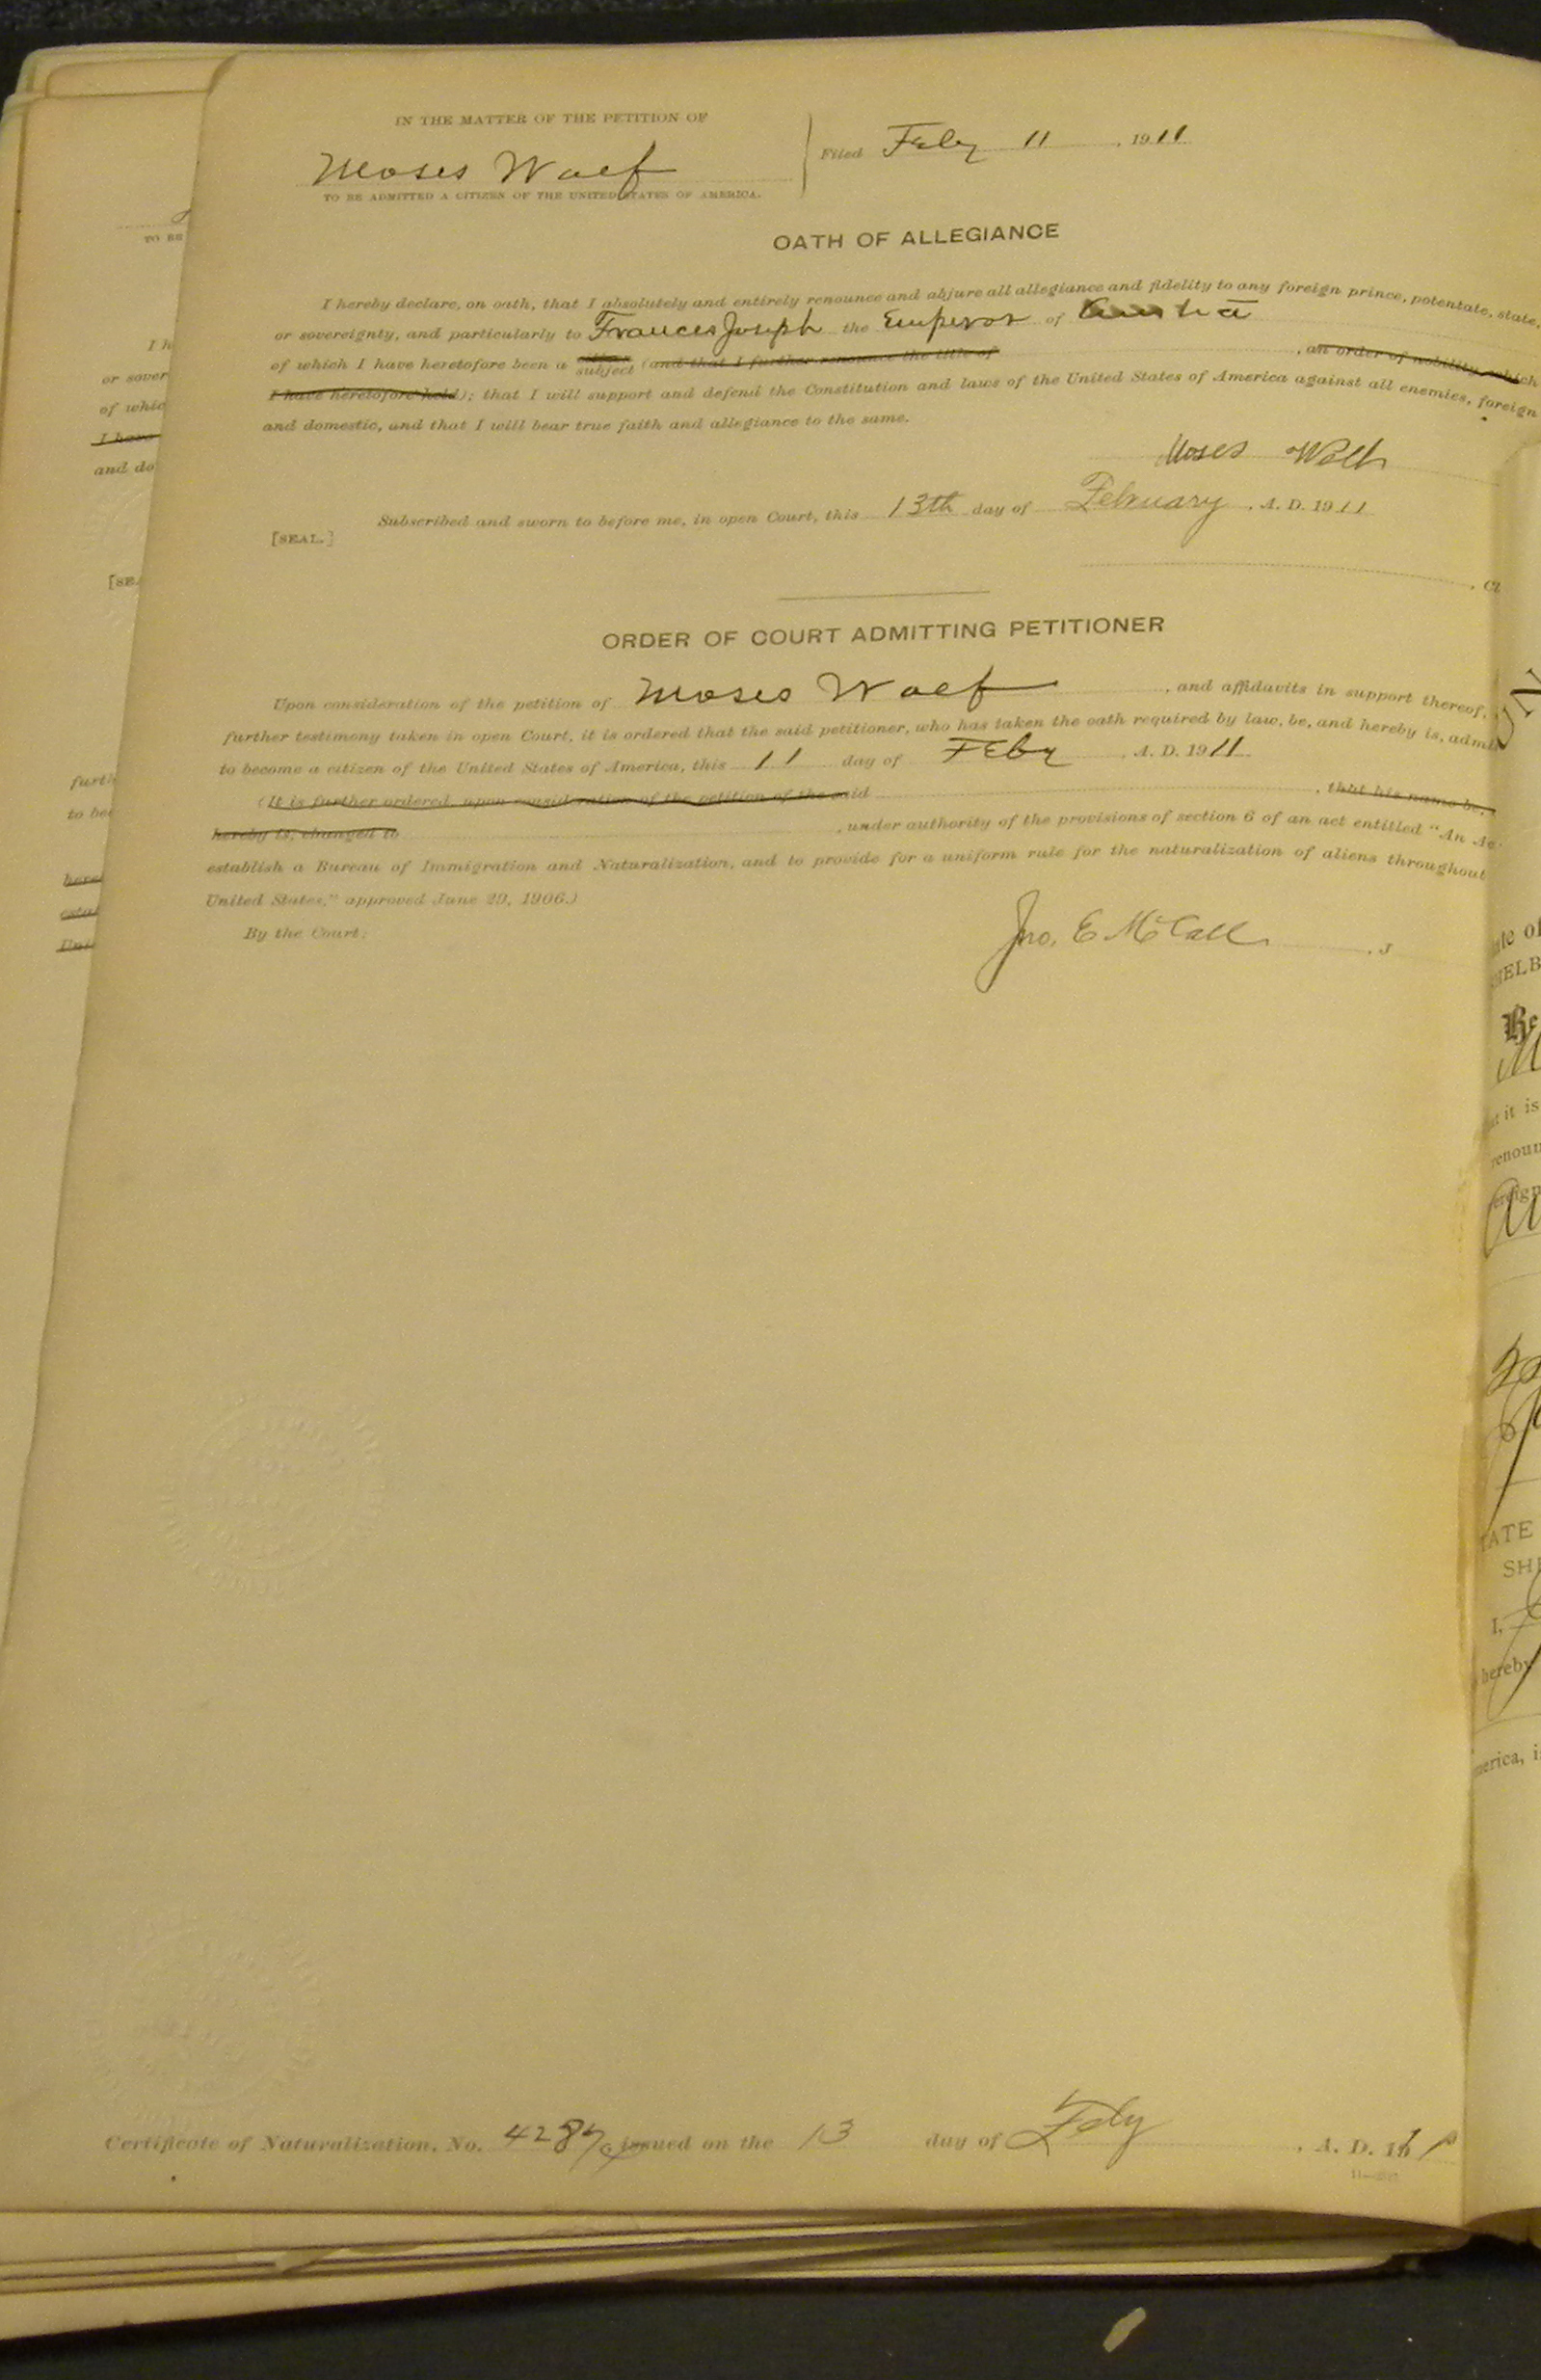 IN THE MATTER OF THE PETITION OF
Moses Wolf
TO BE ADMITTED A CITIZEN OF THE UNITED STATES OF AMERICA.
Filed Feby 11, 1911
OATH OF ALLEGIANCE
I hereby declare, on oath, that I absolutely and entirely renounce and abjure all allegiance and fidelity to any foreign prince, potentate, state,
or sovereignty, and particularly to Frances Joseph the Emperor of Austria
of which I have heretofore been a subject (and that I further renounce the title of , an order of nobility, which
I have heretofore held); that I will support and defend the Constitution and laws of the United States of America against all enemies, foreign
and domestic, and that I will bear true faith and allegiance to the same.
Moses Wolf
Subscribed and sworn to before me, in open Court, this 13th day of February, A. D. 1911
[SEAL.]
ORDER OF COURT ADMITTING PETITIONER
Upon consideration of the petition of Moses Wolf, and affidavits in support thereof,
further testimony taken in open Court, it is ordered that the said petitioner, who has taken the oath required by law, be, and hereby is, admi
to become a citizen of the United States of America, this 11 day of Feby, A. D. 1911
(It is further ordered, upon consideration of the petition of the said , that his name be,
hereby is, changed to , under authority of the provisions of section 6 of an act entitled "An Ac
establish a Bureau of Immigration and Naturalization, and to provide for a uniform rule for the naturalization of aliens throughout
United States," approved June 29, 1906.)
By the Court:
Jno. E McCall, J
Certificate of Naturalization, No. issued on the 13 day of Feby, A. D. 1911